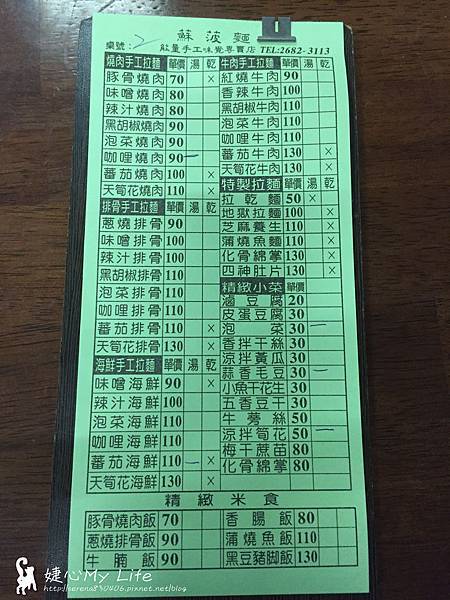 蘇菠麵
桌號： 能量手工味覺專賣店 TEL:2682-3113
燒肉手工拉麵 單價 湯 乾
豚骨燒肉 70 ×
味噌燒肉 80
辣汁燒肉 80
黑胡椒燒肉 90
泡菜燒肉 90
咖哩燒肉 90
蕃茄燒肉 100 ×
天筍花燒肉 110 ×
排骨手工拉麵 單價 湯 乾
蔥燒排骨 90
味噌排骨 100
辣汁排骨 100
黑胡椒排骨 110
泡菜排骨 110
咖哩排骨 110
蕃茄排骨 110 ×
天筍花排骨 130 ×
海鮮手工拉麵 單價 湯 乾
味噌海鮮 90 ×
辣汁海鮮 100
泡菜海鮮 110
咖哩海鮮 110
蕃茄海鮮 110 ×
天筍花海鮮 130 ×
牛肉手工拉麵 單價 湯 乾
紅燒牛肉 90
香辣牛肉 100
黑胡椒牛肉 110
泡菜牛肉 110
咖哩牛肉 110
蕃茄牛肉 130 ×
天筍花牛肉 130 ×
特製拉麵 單價 湯 乾
拉乾麵 50 ×
地獄拉麵 100 ×
芝麻養生 110 ×
蒲燒魚麵 110 ×
化骨綿掌 130 ×
四神肚片 130 ×
精緻小菜 單價
滷豆腐 20
皮蛋豆腐 30
泡菜 30
香拌干絲 30
涼拌黃瓜 30
蒜香毛豆 30
小魚干花生 30
五香豆干 30
牛蒡絲 50
涼拌筍花 50
梅干蔗苗 80
化骨綿掌 80
精緻米食
豚骨燒肉飯 70
蔥燒排骨飯 90
牛腩飯 90
香腸飯 80
蒲燒魚飯 110
黑豆豬腳飯 130
婕心My Life
http://serena830406.pixnet.net/blog